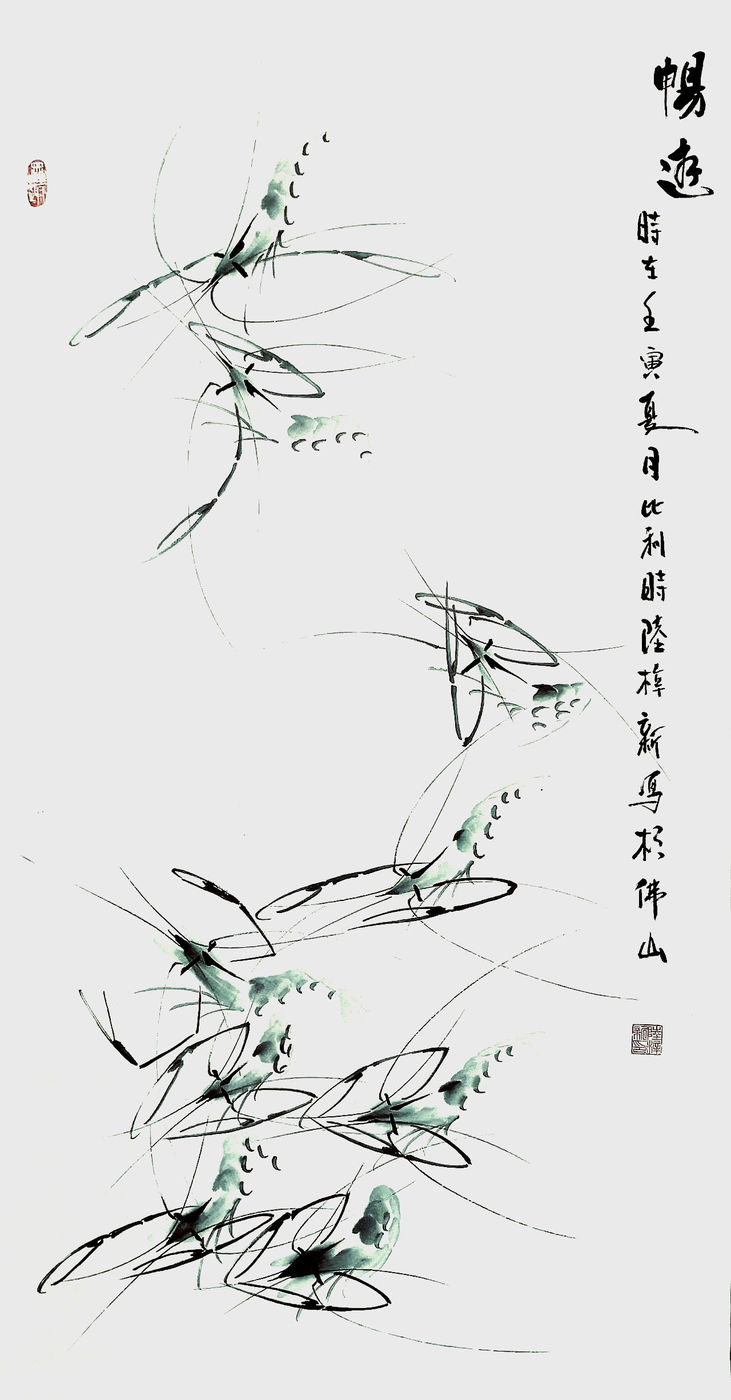 暢遊
時在壬寅夏月比利時陸樟新寫於佛山